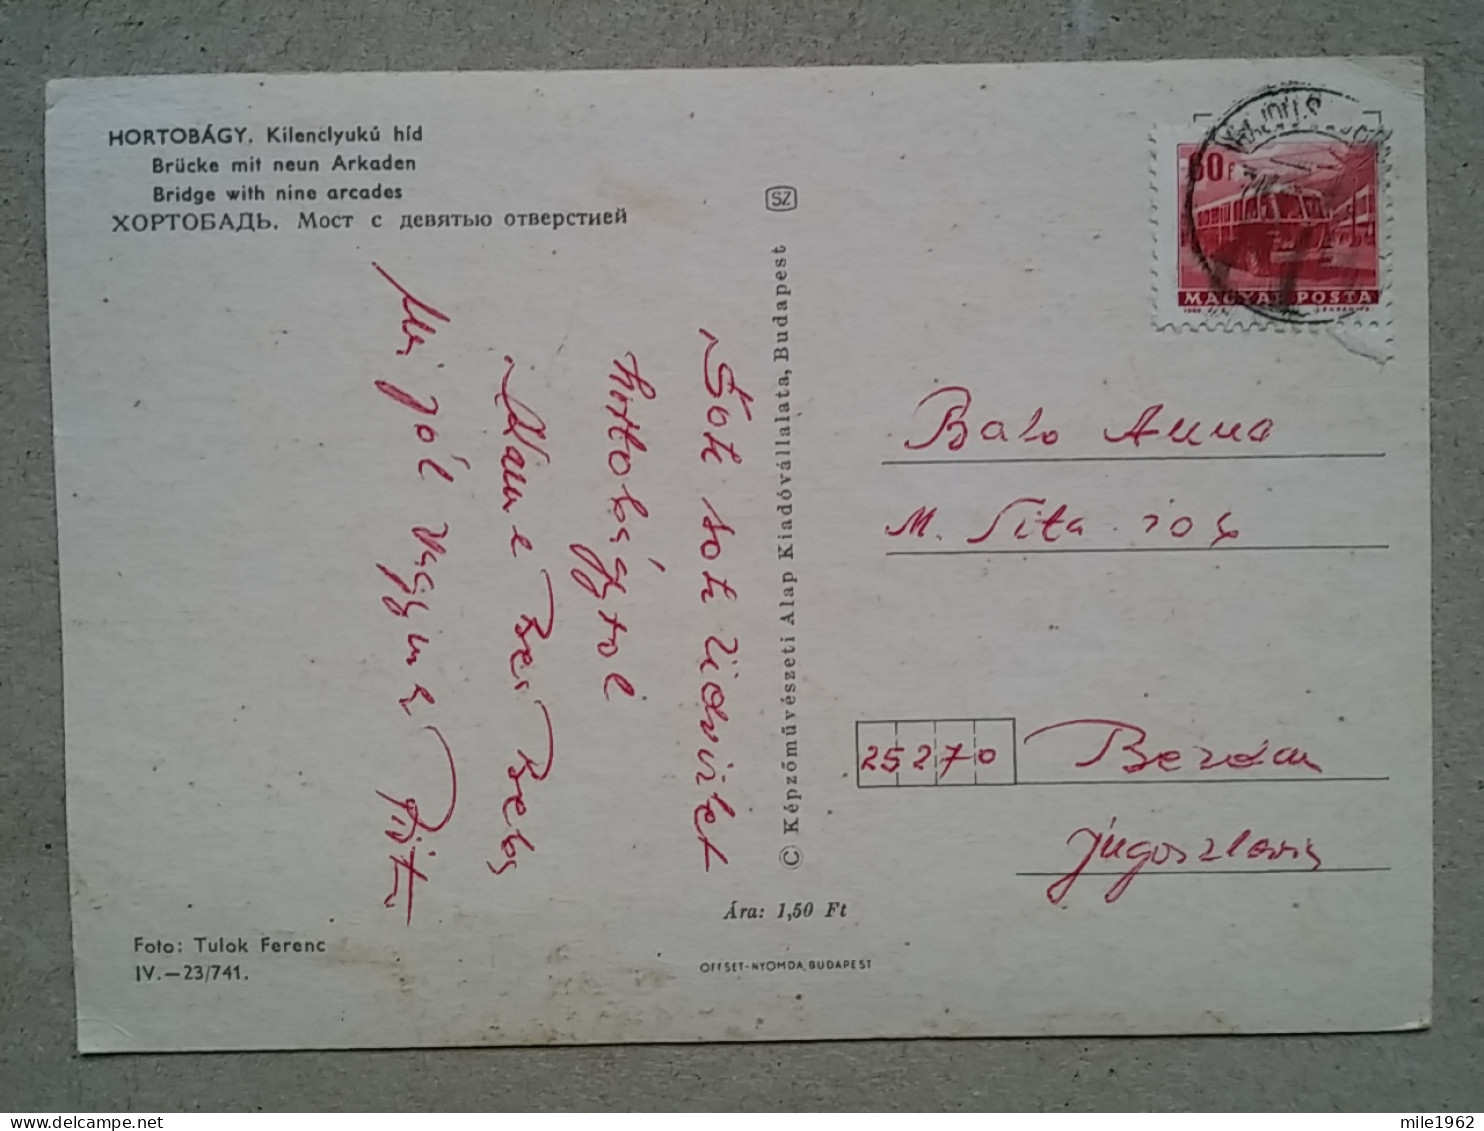 HORTOBÁGY. Kilenclyukú híd
Brücke mit neun Arkaden
Bridge with nine arcades
ХОРТОБАДЬ. Мост с девятью отверстией
Sok sok üdvözlet
Hortobágyról
Mi jól vagyunk
© Képzőművészeti Alap Kiadóvállalata, Budapest
SZ
60 f
MAGYAR POSTA
Anna
M. Tita
25270 Bezdan
Jugoszlavia
Ára: 1,50 Ft
OFFSET-NYOMDA, BUDAPEST
Foto: Tulok Ferenc
IV.—23/741.
mile1962